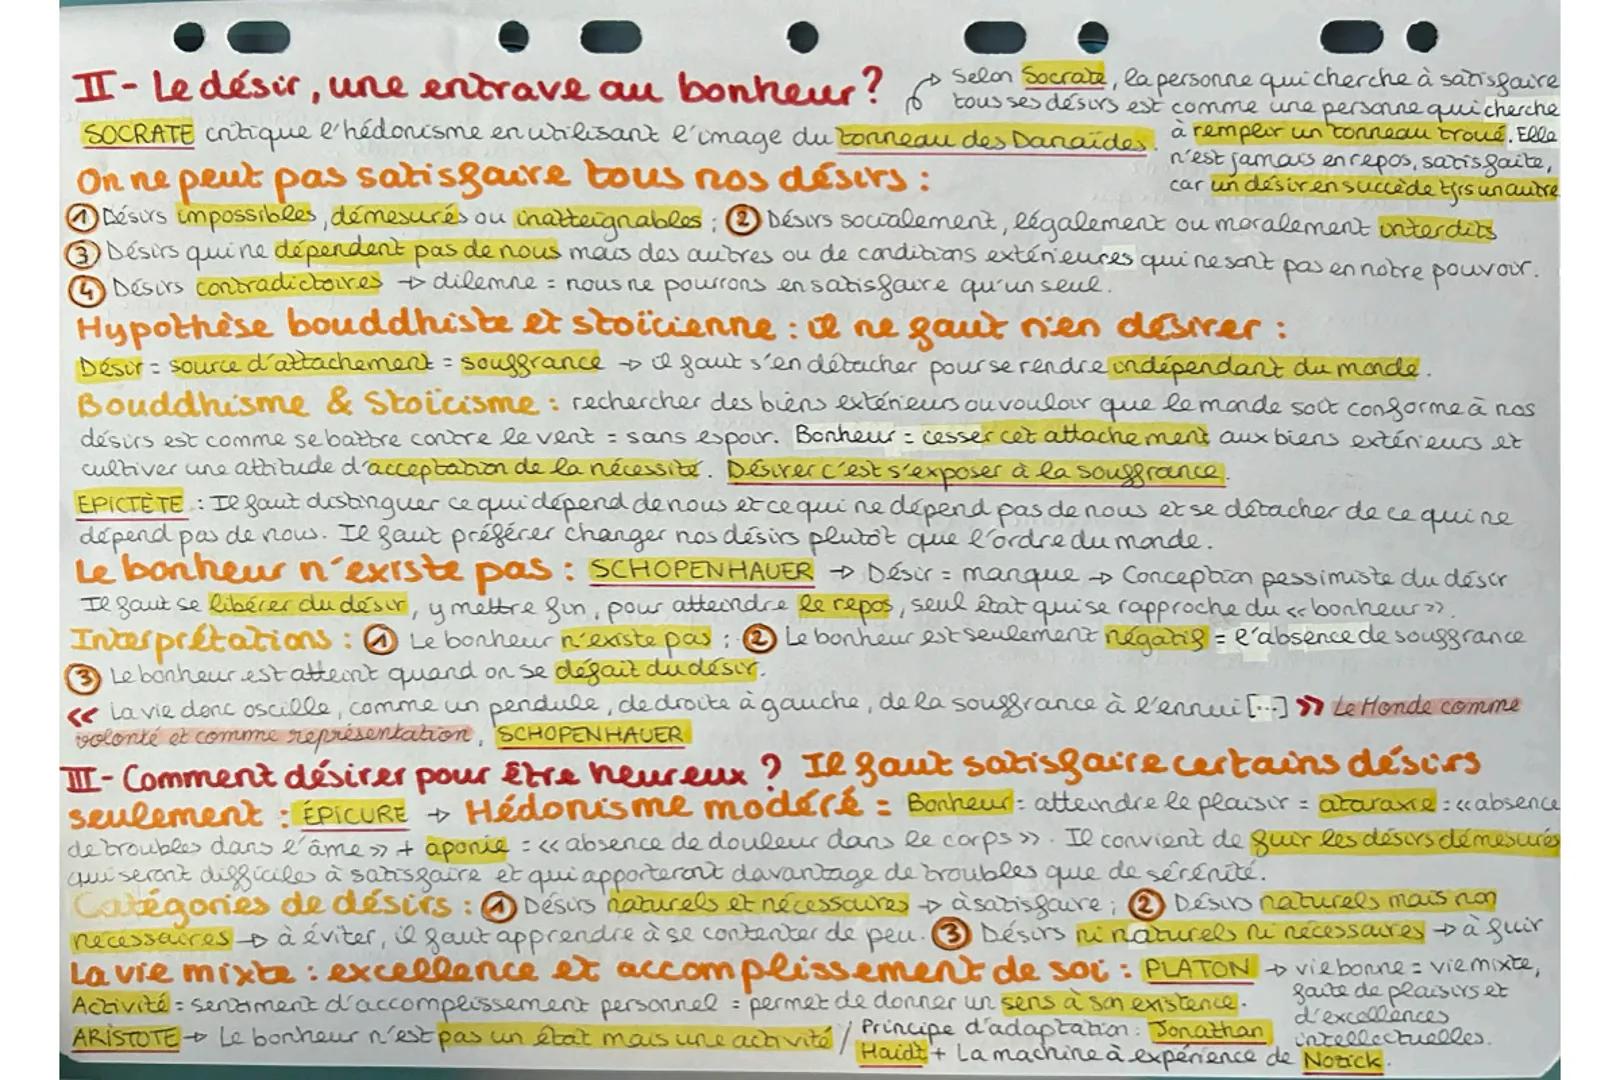 II - Le désir, une entrave au bonheur ?
→ Selon Socrate, la personne qui cherche à satisfaire
tous ses désirs est comme une personne qui cherche
à remplir un tonneau troué. Elle
n'est jamais en repos, satisfaite,
car un désir en succède tjrs un autre
SOCRATE critique l'hédonisme en utilisant l'image du tonneau des Danaïdes.
On ne peut pas satisfaire tous nos désirs :
① Désirs impossibles, démesurés ou inatteignables ; ② Désirs socialement, légalement ou moralement interdits
③ Désirs qui ne dépendent pas de nous mais des autres ou de conditions extérieures qui ne sont pas en notre pouvoir.
④ Désirs contradictoires → dilemne = nous ne pourrons en satisfaire qu'un seul.
Hypothèse bouddhiste et stoïcienne : il ne faut rien désirer :
Désir = source d'attachement = souffrance → il faut s'en détacher pour se rendre indépendant du monde.
Bouddhisme & Stoïcisme : rechercher des biens extérieurs ou vouloir que le monde soit conforme à nos
désirs est comme se battre contre le vent = sans espoir. Bonheur = cesser cet attachement aux biens extérieurs et
cultiver une attitude d'acceptation de la nécessité. Désirer c'est s'exposer à la souffrance.
EPICTÈTE : Il faut distinguer ce qui dépend de nous et ce qui ne dépend pas de nous et se détacher de ce qui ne
dépend pas de nous. Il faut préférer changer nos désirs plutôt que l'ordre du monde.
Le bonheur n'existe pas : SCHOPENHAUER → Désir = manque → Conception pessimiste du désir
Il faut se libérer du désir, y mettre fin, pour atteindre le repos, seul état qui se rapproche du « bonheur ».
Interprétations : ① Le bonheur n'existe pas ; ② Le bonheur est seulement négatif = l'absence de souffrance
③ Le bonheur est atteint quand on se défait du désir.
« La vie donc oscille, comme un pendule, de droite à gauche, de la souffrance à l'ennui [...] » Le Monde comme
volonté et comme représentation, SCHOPENHAUER
III - Comment désirer pour être heureux ? Il faut satisfaire certains désirs
seulement : ÉPICURE → Hédonisme modéré = Bonheur = atteindre le plaisir = ataraxie = « absence
de troubles dans l'âme » + aponie = « absence de douleur dans le corps ». Il convient de fuir les désirs démesurés
qui seront difficiles à satisfaire et qui apporteront davantage de troubles que de sérénité.
Catégories de désirs : ① Désirs naturels et nécessaires → à satisfaire ; ② Désirs naturels mais non
nécessaires → à éviter, il faut apprendre à se contenter de peu. ③ Désirs ni naturels ni nécessaires → à fuir
La vie mixte : excellence et accomplissement de soi : PLATON → vie bonne = vie mixte,
faite de plaisirs et
d'excellences
intellectuelles.
Activité = sentiment d'accomplissement personnel = permet de donner un sens à son existence.
ARISTOTE → Le bonheur n'est pas un état mais une activité / Principe d'adaptation : Jonathan
Haidt + La machine à expérience de Nozick.